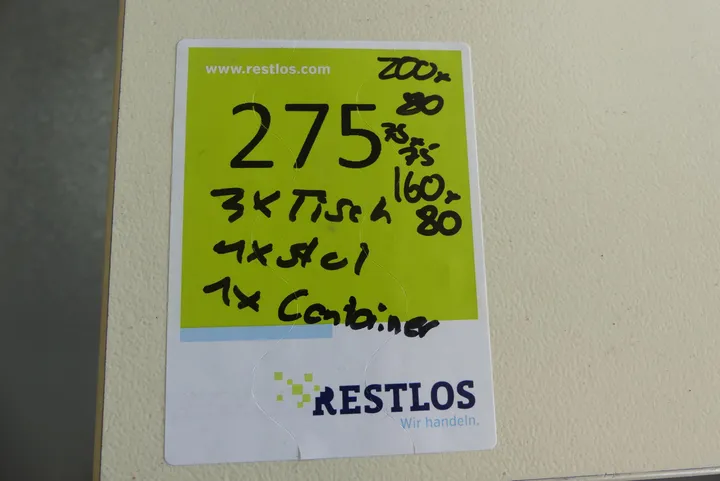 www.restlos.com
200x
80
275
75x
75
160x
80
3x Tisch
1x Stul
1x Container
RESTLOS
Wir handeln.